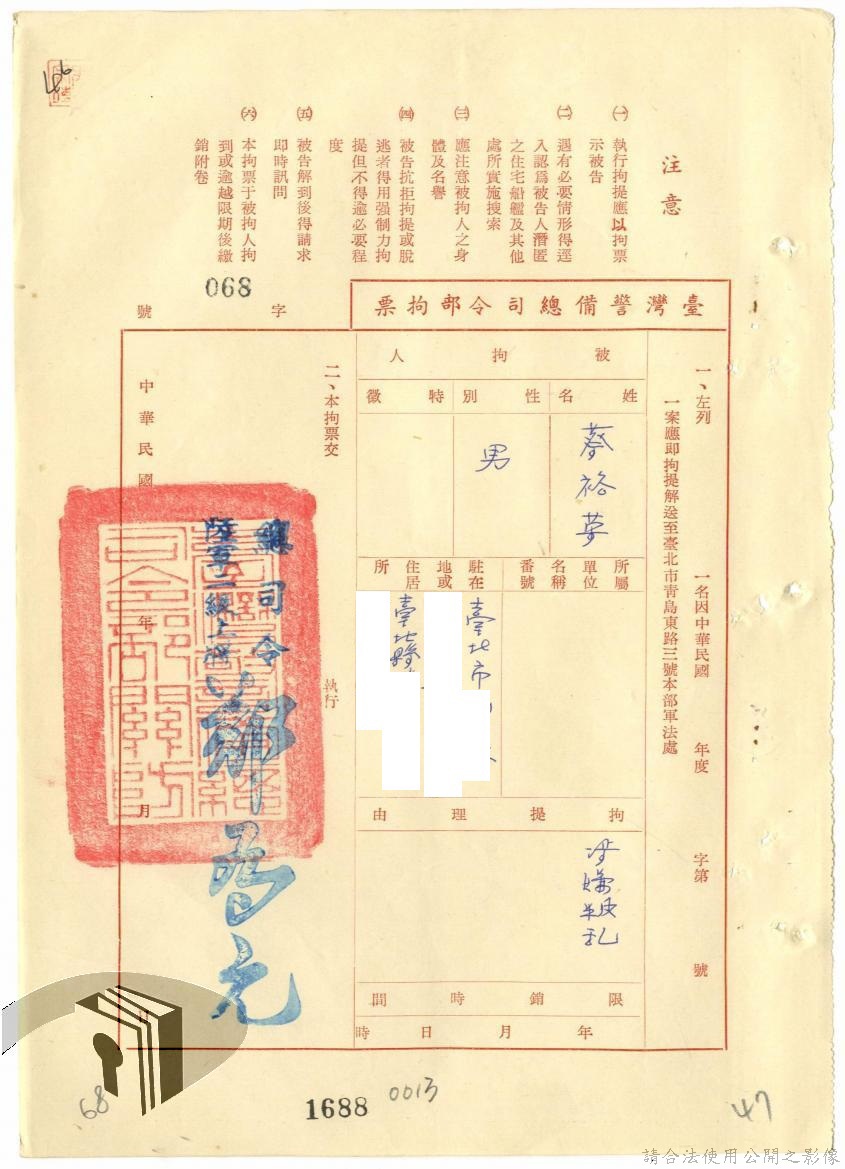 46
注意
㈠ 執行拘提應以拘票
示被告
㈡ 遇有必要情形得逕
入認為被告人潛匿
之住宅船艦及其他
處所實施搜索
㈢ 應注意被拘人之身
體及名譽
㈣ 被告抗拒拘提或脫
逃者得用强制力拘
提但不得逾必要程
度
㈤ 被告解到後得請求
即時訊問
㈥ 本拘票于被拘人拘
到或逾越限期後繳
銷附卷
臺灣警備總司令部拘票
字 068 號
一、左列 一名因中華民國 年度 字第 號
一案應即拘提解送至臺北市青島東路三號本部軍法處
被拘人
姓名
蔡裕荣
性別
男
特徵
所屬
單位
名稱
番號
駐在
地或
住居
所
臺北市
臺北縣
拘提理由
涉嫌叛乱
限銷時間
年 月 日 時
二、本拘票交 執行
總司令
陸軍二級上將
鄭為元
中華民國 年 月 日
68
1688
0013
47
請合法使用公開之影像